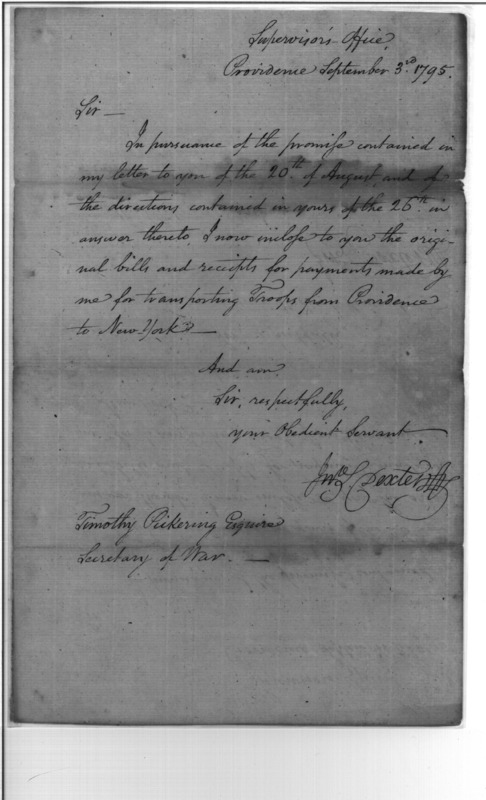 Supervisor's Office,
Providence September 3rd. 1795.
Sir —
In pursuance of the promise contained in
my letter to you of the 20th. of August, and of
the directions contained in yours of the 26th. in
answer thereto, I now inclose to you the origi-
nal bills and receipts for payments made by
me for transporting Troops from Providence
to New-York. —
And am
Sir, respectfully,
your Obedient Servant
Jno. S. Dexter
Timothy Pickering Esquire
Secretary of War. —